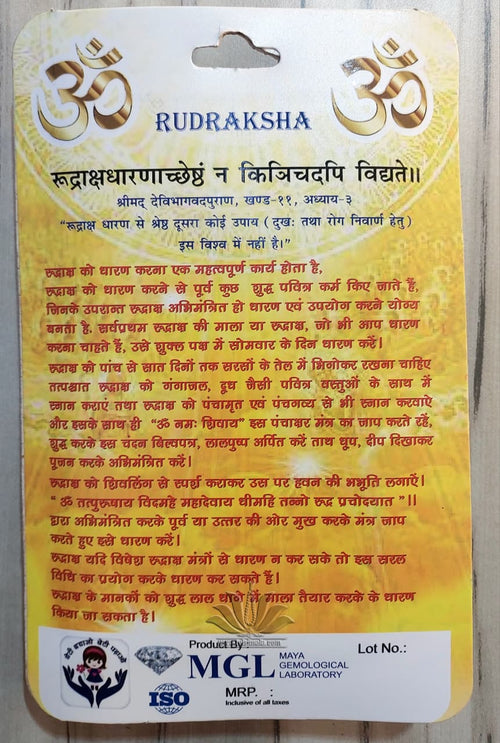 ॐ ॐ
RUDRAKSHA
रूद्राक्षधारणाच्छ्रेष्ठं न किञ्चिदपि विद्यते॥
श्रीमद् देविभागवदपुराण, खण्ड-११, अध्याय-३
“रूद्राक्ष धारण से श्रेष्ठ दूसरा कोई उपाय (दुखः तथा रोग निवार्ण हेतु)
इस विश्व में नहीं है।”
रूद्राक्ष को धारण करना एक महत्वपूर्ण कार्य होता है,
रूद्राक्ष को धारण करने से पूर्व कुछ शुद्ध पवित्र कर्म किए जाते हैं,
जिनके उपरान्त रूद्राक्ष अभिमंत्रित हो धारण एवं उपयोग करने योग्य
बनता है. सर्वप्रथम रूद्राक्ष की माला या रूद्राक्ष, जो भी आप धारण
करना चाहते हैं, उसे शुक्ल पक्ष में सोमवार के दिन धारण करें।
रूद्राक्ष को पांच से सात दिनों तक सरसों के तेल में भिगोकर रखना चाहिए
तत्पश्चात रूद्राक्ष को गंगाजल, दूध जैसी पवित्र वस्तुओं के साथ में
स्नान कराएं तथा रूद्राक्ष को पंचामृत एवं पंचगव्य से भी स्नान करवाऐ
और इसके साथ ही “ॐ नमः शिवाय” इस पंचाक्षर मंत्र का जाप करते रहें,
शुद्ध करके इस चंदन बिल्वपत्र, लालपुष्प अर्पित करें ताथ धूप, दीप दिखाकर
पूजन करके अभिमंत्रित करें।
रूद्राक्ष को शिवलिंग से स्पर्श कराकर उस पर हवन की भभूति लगाऐं।
“ ॐ तत्पुरूषाय विदमहे महादेवाय धीमहि तन्नो रूद्र प्रचोदयात ”।।
द्वारा अभिमंत्रित करके पूर्व या उत्तर की ओर मुख करके मंत्र जाप
करते हुए इसे धारण करें।
रूद्राक्ष यदि विषेश रूद्राक्ष मंत्रों से धारण न कर सके तो इस सरल
विधि का प्रयोग करके धारण कर सकते हैं।
रूद्राक्ष के मानकों को शुद्ध लाल धागे में माला तैयार करके के धारण
किया जा सकता है।
बेटी बचाओ बेटी पढ़ाओ
ISO
Product By
MGL MAYA GEMOLOGICAL LABORATORY
MRP. :
Inclusive of all taxes
Lot No.: